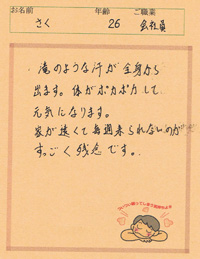 お名前 年齢 ご職業
さく 26 会社員
滝のような汗が全身から
出ます。体がポカポカして
元気になります。
家が遠くて毎週来られないのが
すごく残念です。